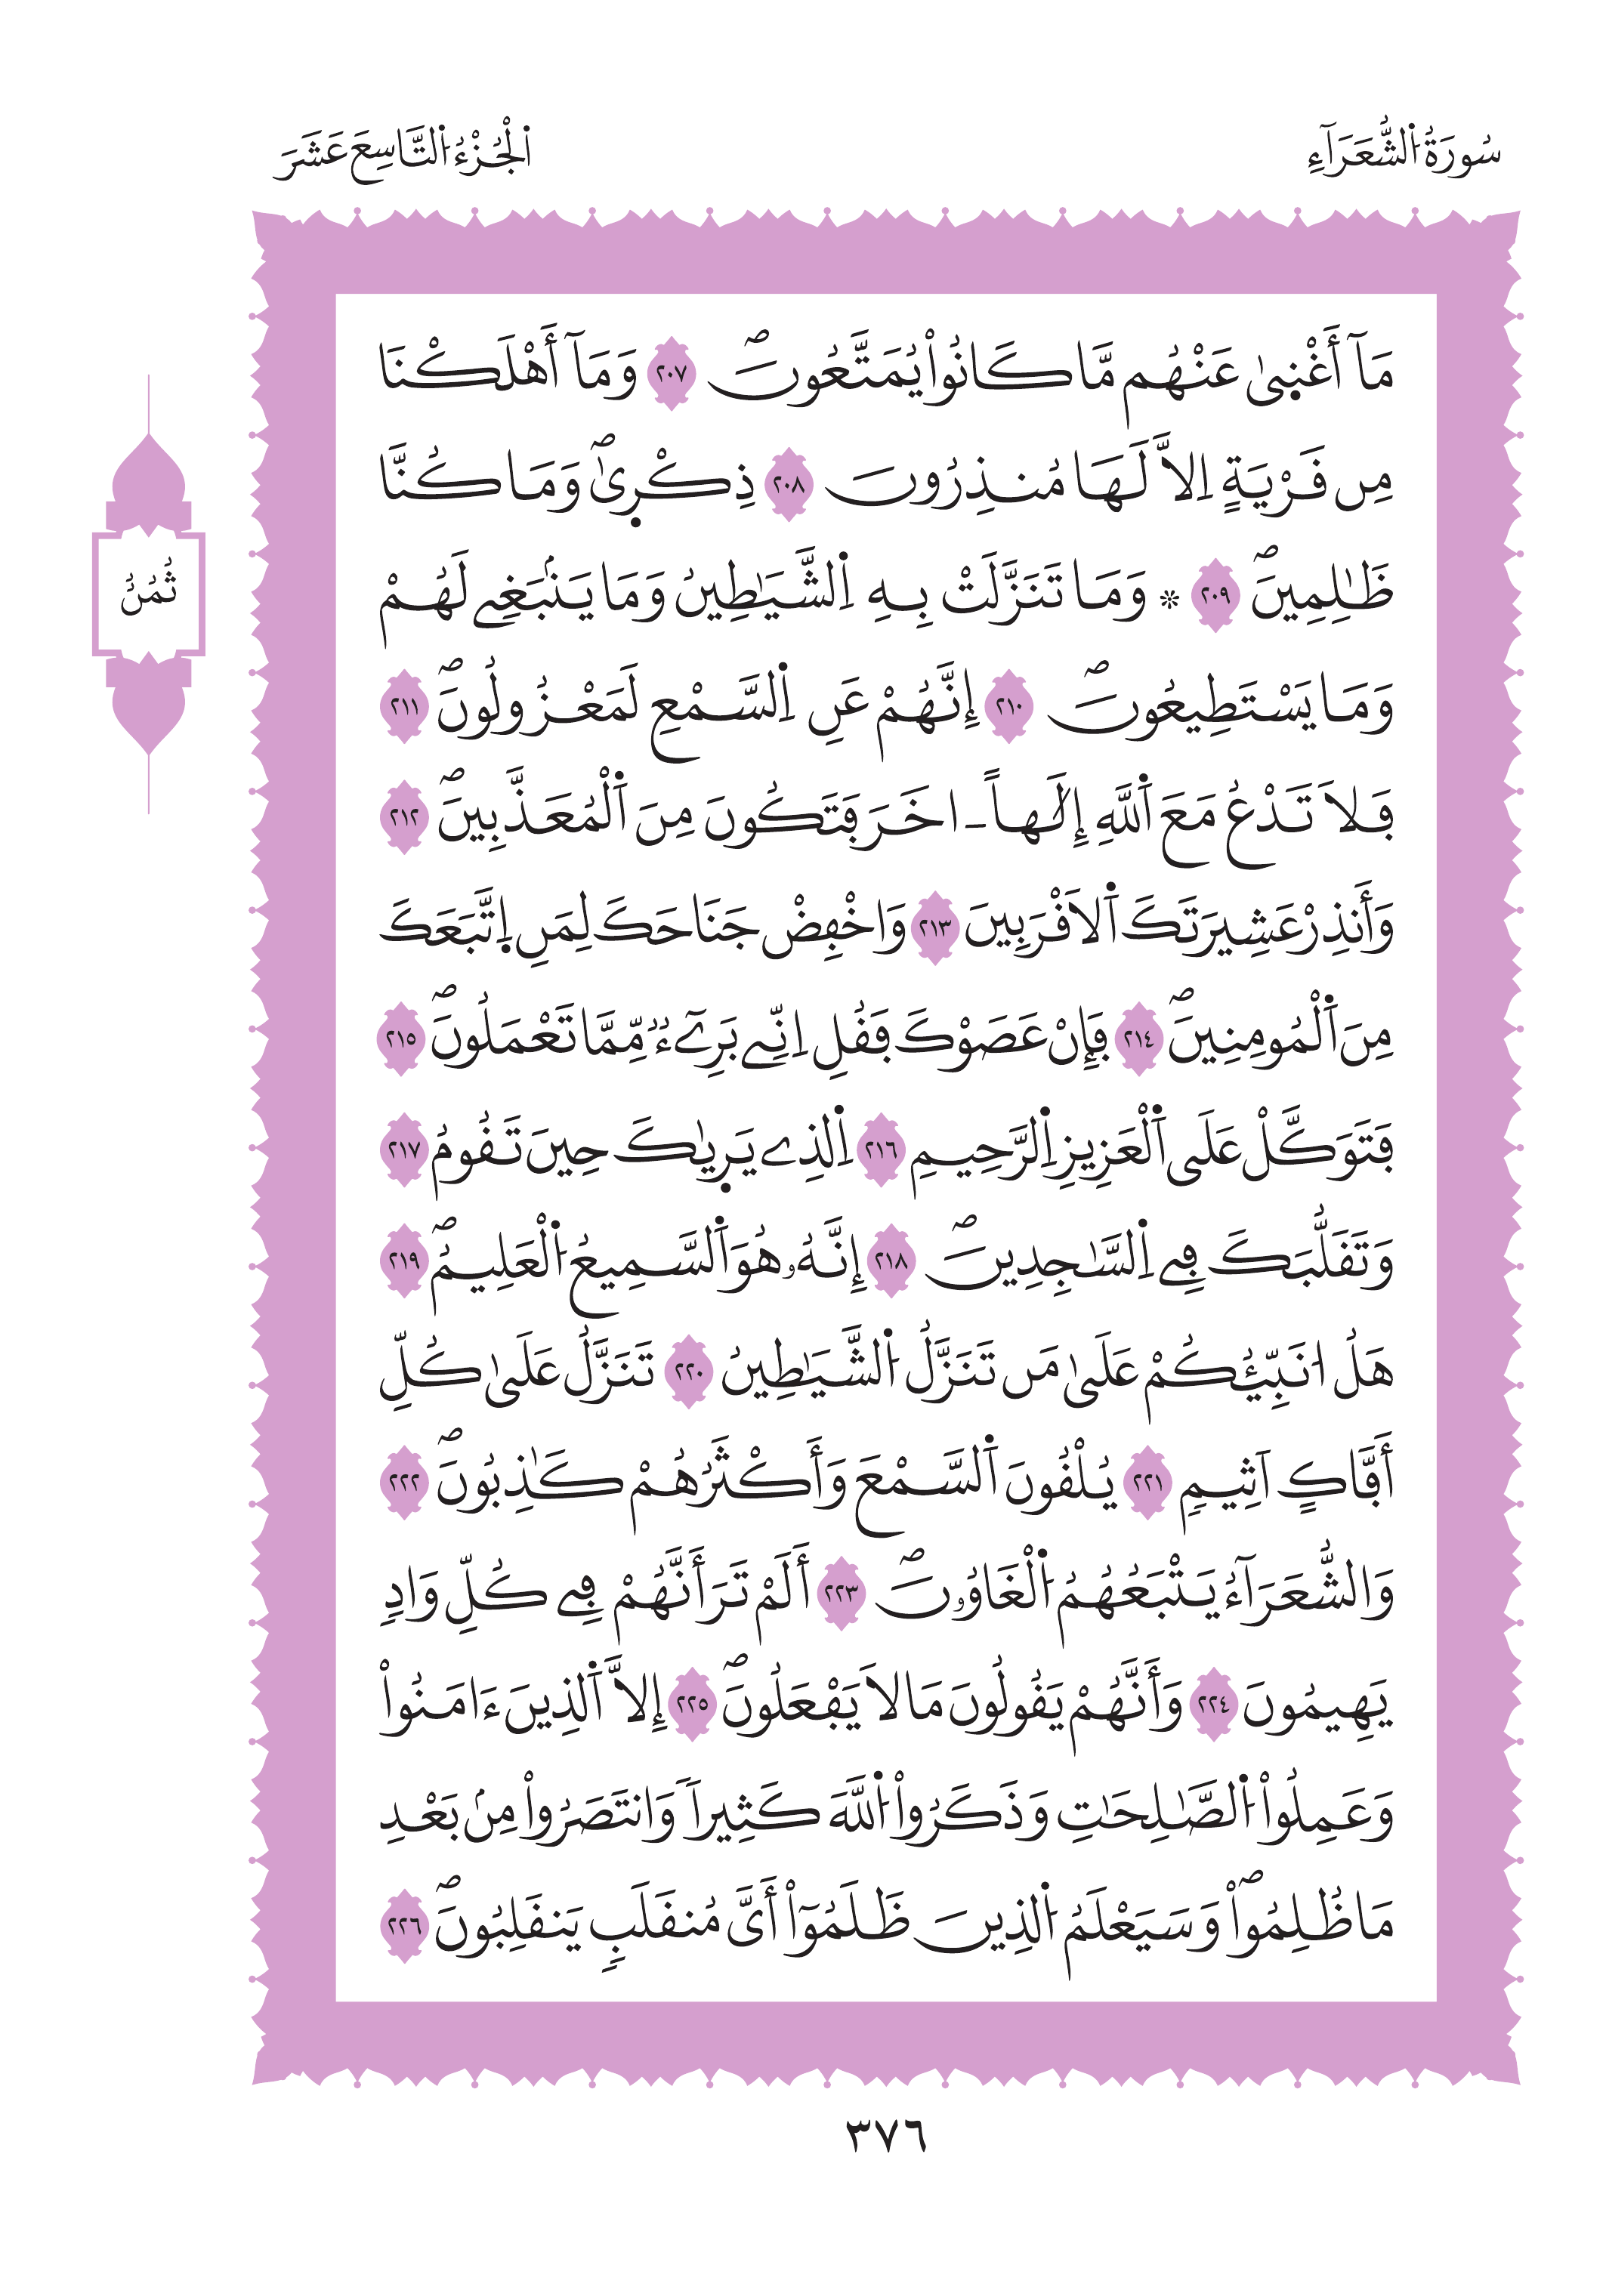 سُورَةُ اُ۬لشُّعَرَآءِ
اَ۬لْجُزْءُ اُ۬لتَّاسِعَ عَشَرَ
مَآ أَغْنۭىٰ عَنْهُم مَّا كَانُواْ يُمَتَّعُونَۖ ٢٠٧ وَمَآ أَهْلَكْنَا
مِن قَرْيَةٍ اِلَّا لَهَا مُنذِرُونَ ٢٠٨ ذِكْر۪ىٰۖ وَمَا كُنَّا
ثُمُنُ
ظَٰلِمِينَۖ ٢٠٩ * وَمَا تَنَزَّلَتْ بِهِ اِ۬لشَّيَٰطِينُ وَمَا يَنۢبَغِے لَهُمْ
وَمَا يَسْتَطِيعُونَۖ ٢١٠ إِنَّهُمْ عَنِ اِ۬لسَّمْعِ لَمَعْزُولُونَۖ ٢١١
فَلَا تَدْعُ مَعَ اَ۬للَّهِ إِلَٰهاً ـ اخَرَ فَتَكُونَ مِنَ اَ۬لْمُعَذَّبِينَۖ ٢١٢
وَأَنذِرْ عَشِيرَتَكَ اَ۬لَاقْرَبِينَ ٢١٣ وَاخْفِضْ جَنَاحَكَ لِمَنِ اِ۪تَّبَعَكَ
مِنَ اَ۬لْمُومِنِينَۖ ٢١٤ فَإِنْ عَصَوْكَ فَقُلِ اِنِّے بَرِےٓءٌ مِّمَّا تَعْمَلُونَۖ ٢١٥
فَتَوَكَّلْ عَلَى اَ۬لْعَزِيزِ اِ۬لرَّحِيمِ ٢١٦ اِ۬لذِے يَر۪يٰكَ حِينَ تَقُومُ ٢١٧
وَتَقَلُّبَكَ فِے اِ۬لسَّٰجِدِينَۖ ٢١٨ إِنَّهُۥ هُوَ اَ۬لسَّمِيعُ اُ۬لْعَلِيمُۖ ٢١٩
هَلُ ا۟نَبِّئُكُمْ عَلَىٰ مَن تَنَزَّلُ اُ۬لشَّيَٰطِينُ ٢٢٠ تَنَزَّلُ عَلَىٰ كُلِّ
أَفَّاكٍ اَثِيمٍ ٢٢١ يُلْقُونَ اَ۬لسَّمْعَ وَأَكْثَرُهُمْ كَٰذِبُونَۖ ٢٢٢
وَالشُّعَرَآءُ يَتْبَعُهُمُ اُ۬لْغَاوُۥنَۖ ٢٢٣ أَلَمْ تَرَ أَنَّهُمْ فِے كُلِّ وَادٖ
يَهِيمُونَ ٢٢٤ وَأَنَّهُمْ يَقُولُونَ مَا لَا يَفْعَلُونَۖ ٢٢٥ إِلَّا اَ۬لذِينَ ءَامَنُواْ
وَعَمِلُواْ اُ۬لصَّٰلِحَٰتِ وَذَكَرُواْ اُ۬للَّهَ كَثِيراٗ وَانتَصَرُواْ مِنۢ بَعْدِ
مَا ظُلِمُواْۖ وَسَيَعْلَمُ اُ۬لذِينَ ظَلَمُوٓاْ أَيَّ مُنقَلَبٖ يَنقَلِبُونَۖ ٢٢٦
٣٧٦